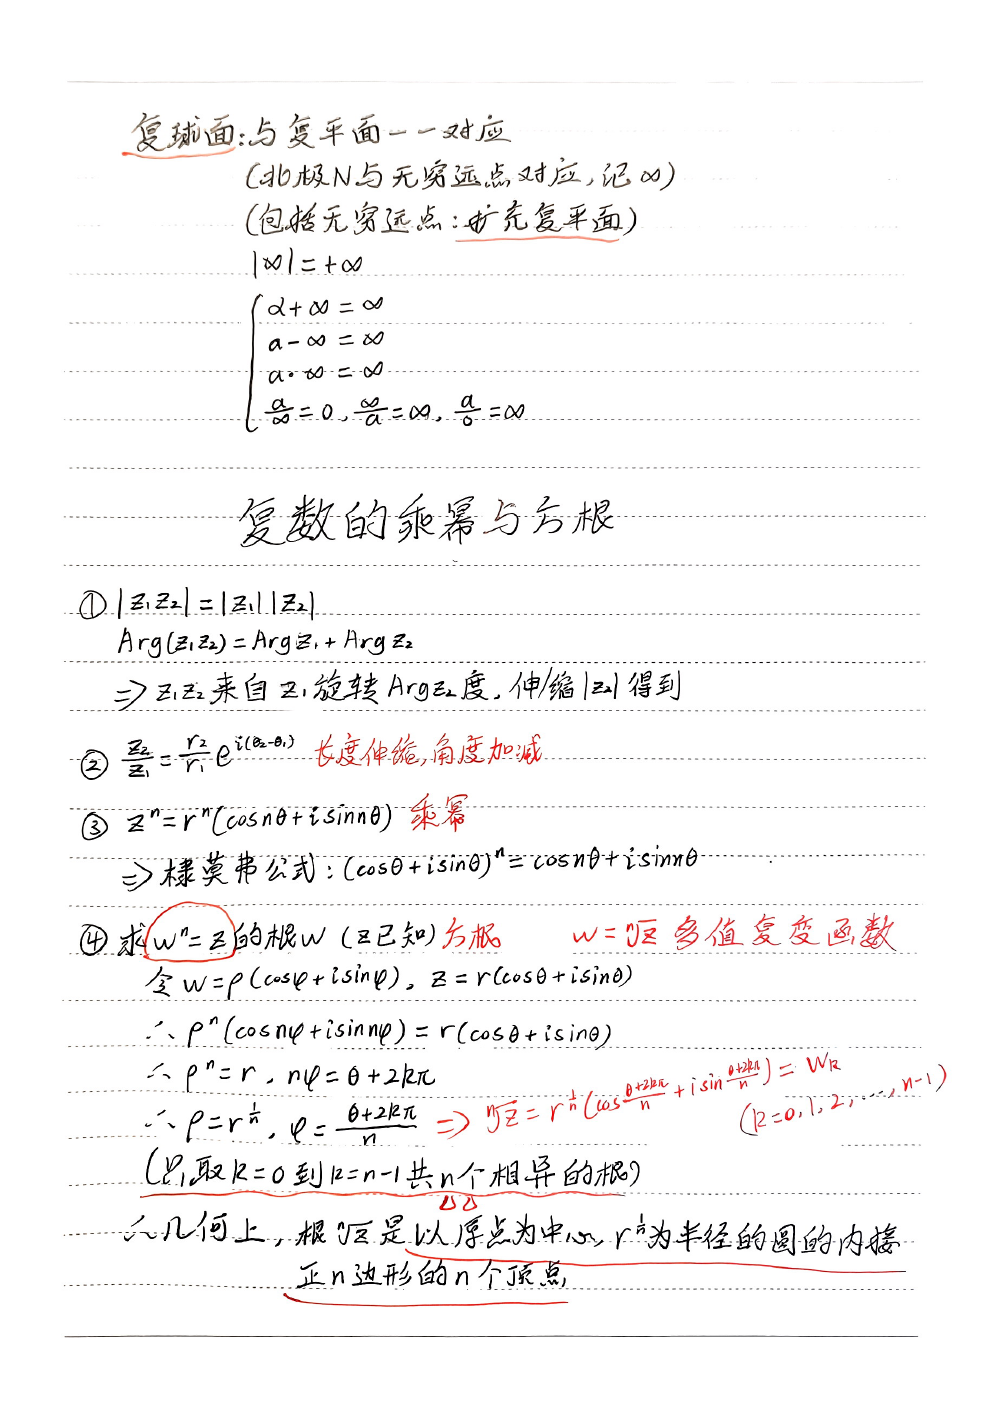 复球面:与复平面一一对应
(北极N与无穷远点对应,记∞)
(包括无穷远点:扩充复平面)
|∞|=+∞
a+∞=∞
a-∞=∞
a·∞=∞
a/∞=0, ∞/a=∞, a/0=∞
复数的乘幂与方根
① |z₁z₂|=|z₁||z₂|
Arg(z₁z₂)=Argz₁+Argz₂
⇒z₁z₂来自z₁旋转Argz₂度,伸/缩|z₂|得到
② z₂/z₁=r₂/r₁ e^{i(θ₂-θ₁)} 长度伸缩,角度加减
③ zⁿ=rⁿ(cosnθ+isinnθ) 乘幂
⇒棣莫弗公式:(cosθ+isinθ)ⁿ=cosnθ+isinnθ
④ 求wⁿ=z的根w (z已知)方根 w=ⁿ√z 多值复变函数
令w=ρ(cosφ+isinφ), z=r(cosθ+isinθ)
∴ρⁿ(cosnφ+isinnφ)=r(cosθ+isinθ)
∴ρⁿ=r, nφ=θ+2kπ
∴ρ=r^{1/n}, φ=(θ+2kπ)/n ⇒ ⁿ√z=r^{1/n}(cos (θ+2kπ)/n+isin (θ+2kπ)/n)=wk
(k=0,1,2,…,n-1)
(只取k=0到k=n-1共n个相异的根)
∴几何上,根ⁿ√z是以原点为中心,r^{1/n}为半径的圆的内接
正n边形的n个顶点